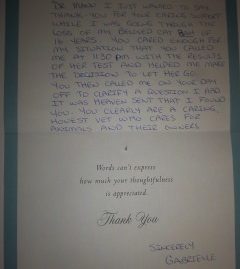 DR. MANN I JUST WANTED TO SAY
THANK YOU FOR YOUR CARING SUPPORT
WHILE I WAS GOING THROUGH THE
LOSS OF MY BELOVED CAT OF
16 YEARS. YOU CARED ENOUGH FOR
MY SITUATION THAT YOU CALLED
ME AT 11:30 PM WITH THE RESULTS
OF HER TEST AND HELPED ME MAKE
THE DECISION TO LET HER GO
YOU THEN CALLED ME ON YOUR DAY
OFF TO CLARIFY A QUESTION I HAD
IT WAS HEAVEN SENT THAT I FOUND
YOU. YOU CLEARLY ARE A CARING,
HONEST VET WHO CARES FOR
ANIMALS AND THEIR OWNERS
Words can't express
how much your thoughtfulness
is appreciated.
Thank You
SINCERELY
GABRIELLE